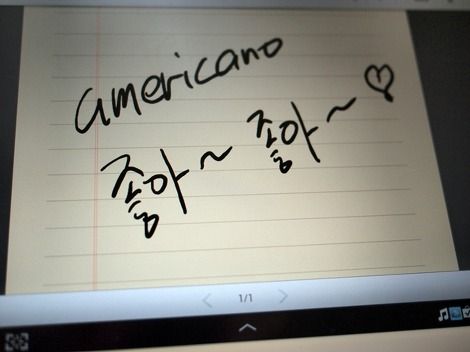 americano
좋아~ 좋아~♡
< 1/1 >